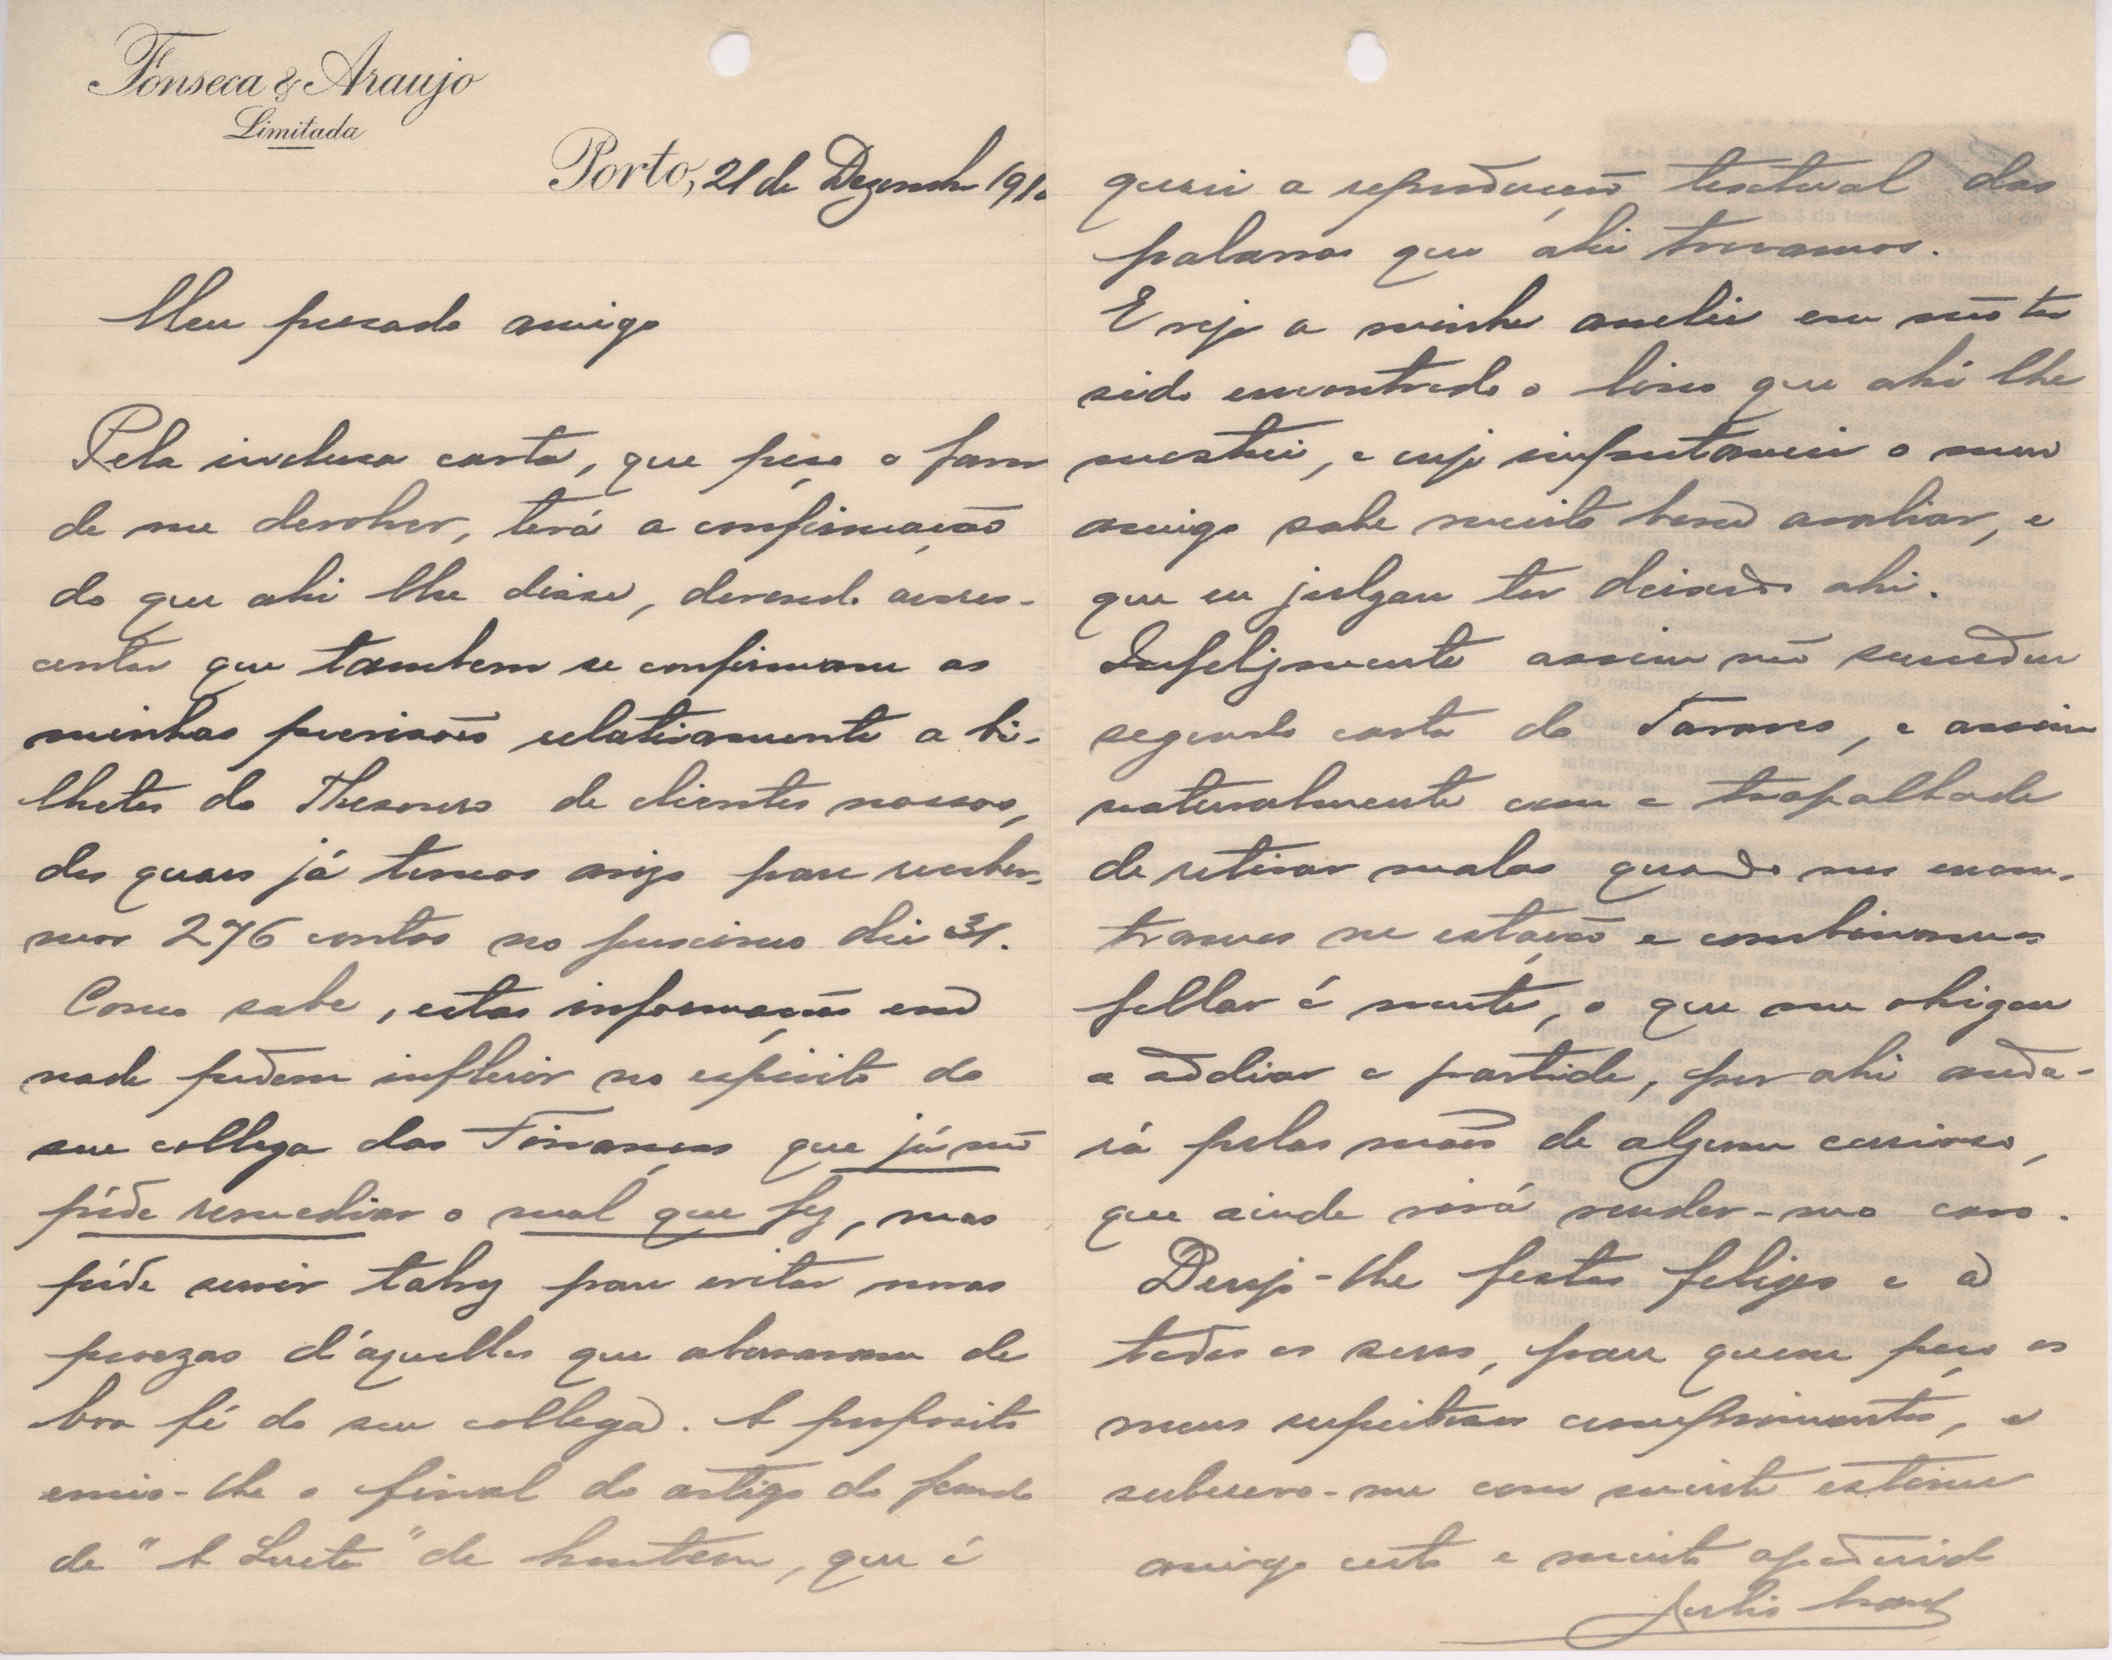 Fonseca & Araujo
Limitada
Porto, 21 de Dezembro 191
Meu presado amigo
Pela inclusa carta, que peço o favor
de me devolver, terá a confirmação
do que ahi lhe disse, devendo acres-
centar que tambem se confirmam as
minhas previsões relativamente a bi-
lhetes do Thesouro de clientes nossos,
dos quaes já temos aviso para receber-
mos 276 contos no proximo dia 31.
Como sabe, estas informações em
nada pódem influir no espirito do
seu collega das Finanças que já não
póde remediar o mal que fez, mas
póde servir talvez para evitar novas
proezas d'aquelles que abusaram da
boa fé do seu collega. A proposito
envio-lhe o final do artigo de fundo
de "A Lucta" de hontem, que é
quasi a reproducção textual das
palavras que ahi trocamos.
E veja a minha em não ter
sido encontrado o livro que ahi lhe
mostrei, e cuja importancia o meu
amigo sabe muito bem avaliar, e
que eu julgava ter deixado ahi.
Infelizmente assim não succedeu
segundo carta do Tavares, e assim
naturalmente com a trapalhada
de retirar malas quando nos encon-
tramos na estação e combinamos
fallar á noute, o que me obrigou
a addiar a partida, por ahi anda-
rá pelas mãos de algum curioso,
que ainda virá vender-m'o caro.
Desejo-lhe festas felizes e a
todos os seus, para quem peço os
meus respeitosos cumprimentos, e
subscrevo-me com muita estima
amigo certo e muito
Julio Araujo